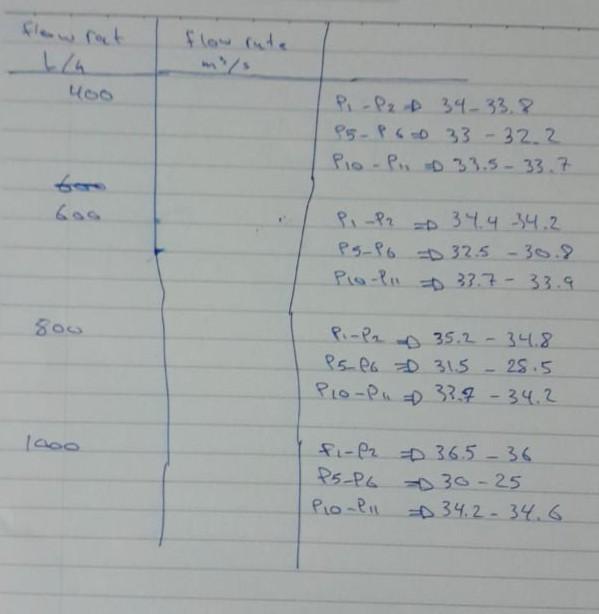 flow rat flow rate
L/h m³/s
400 P1 - P2 ⇒ 34 - 33.8
P5 - P6 ⇒ 33 - 32.2
P10 - P11 ⇒ 33.5 - 33.7
600
600 P1 - P2 ⇒ 34.4 - 34.2
P5 - P6 ⇒ 32.5 - 30.8
P10 - P11 ⇒ 33.7 - 33.9
800 P1 - P2 ⇒ 35.2 - 34.8
P5 - P6 ⇒ 31.5 - 28.5
P10 - P11 ⇒ - 34.2
1000 P1 - P2 ⇒ 36.5 - 36
P5 - P6 ⇒ 30 - 25
P10 - P11 ⇒ 34.2 - 34.6